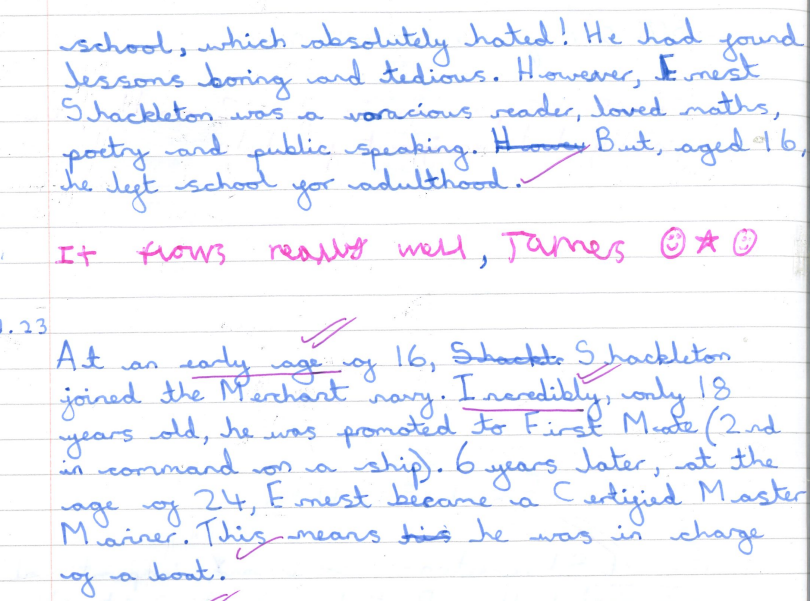 school, which absolutely hated! He had found
lessons boring and tedious. However, Ernest
Shackleton was a voracious reader, loved maths,
poetry and public speaking. But, aged 16,
he left school for adulthood.
It flows really well, James
.23
At an early age of 16, Shackleton
joined the Merchant navy. Incredibly, only 18
years old, he was promoted to First Mate (2nd
in command on a ship). 6 years later, at the
age of 24, Ernest became a Certified Master
Mariner. This means he was in charge
of a boat.